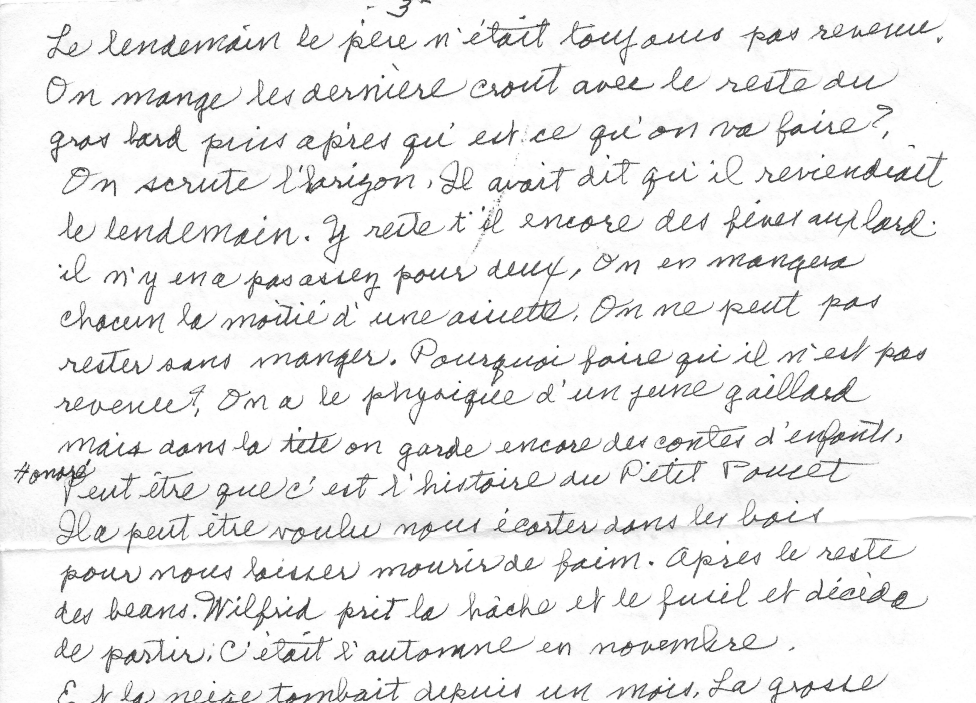 - 3 -
Le lendemain le père n'était toujours pas revenu.
On mange les dernière crout avec le reste du
gros lard puis après qu'est ce qu'on va faire?.
On scrute l'horizon. Il avait dit qu'il reviendrait
le lendemain. Y reste t'il encore des fèves aux lard.
il n'y en a pas assez pour deux, On en mangera
chacun la moitié d'une asiette. On ne peut pas
rester sans manger. Pourquoi faire qu'il n'est pas
revenu?, On a le physique d'un jeune gaillard
mais dans la tête on garde encore des contes d'enfants.
Honoré
Peut être que c'est l'histoire du Pétit Poucet
Il a peut être voulu nous écarter dans les bois
pour nous laisser mourir de faim. Après le reste
des beans. Wilfrid prit la hâche et le fusil et décida
de partir. C'était l'automne en novembre.
Et la neige tombait depuis un mois. La grosse